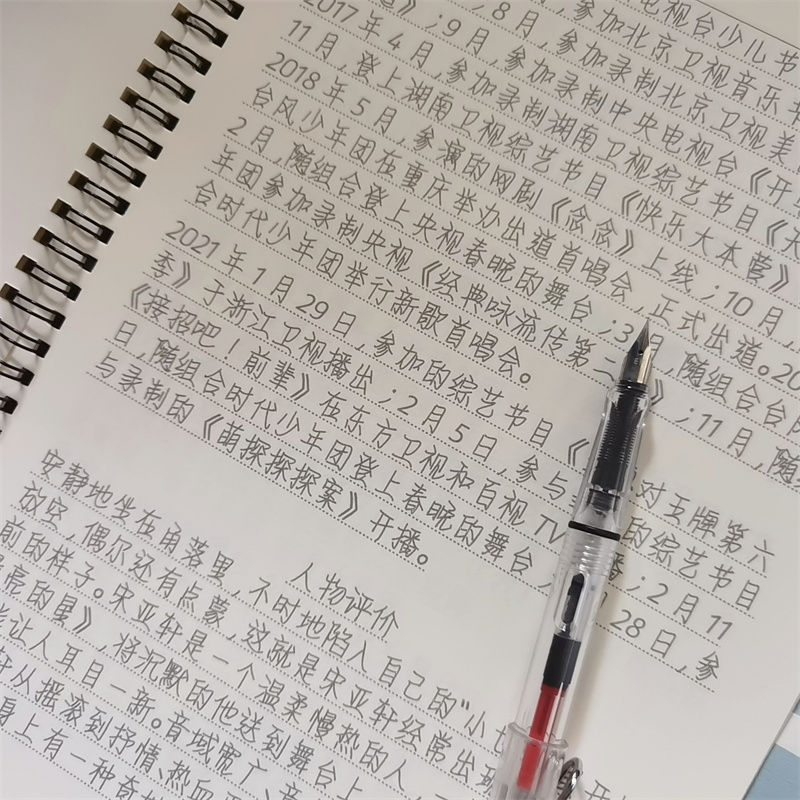 电视台少儿节
》;8月,参加北京卫视音乐
2017年4月,参加录制北京卫视美
11月,登上湖南卫视综艺节目《快乐大本营》
2018年5月,参演的网剧《念念》上线;10月,
台风少年团在重庆举办出道首唱会,正式出道。20
2月,随组合登上央视春晚的舞台;3月,随组合台风
年团参加录制央视《经典咏流传第二》;11月,随
合时代少年团举行新歌首唱会。
2021年1月29日,参加的综艺节目《对王牌第六
季》于浙江卫视播出;2月5日,参与的综艺节目
《接招吧!前辈》在东方卫视和百视TV播;2月11
日,随组合时代少年团登上春晚的舞台,28日,参
与录制的《萌探探探案》开播。
人物评价
安静地坐在角落里,不时地陷入自己的"小
放空,偶尔还有点蒙,这就是宋亚轩经常出
前的样子。宋亚轩是一个温柔慢热的人,
亮的星》,将沉默的他送到舞台上
让人耳目一新。音域宽广、音
轩从摇滚到抒情、热血
身上有一种奇